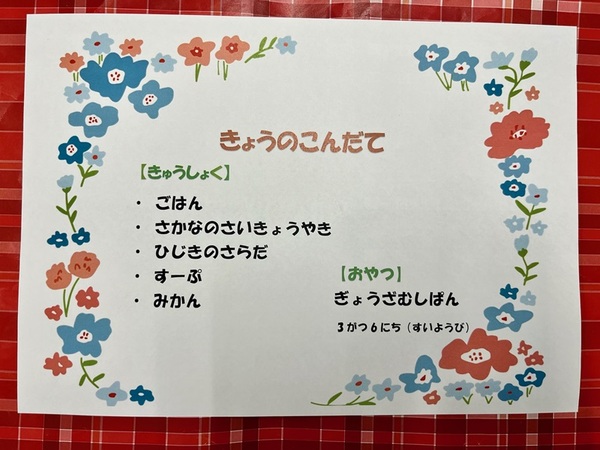 きょうのこんだて
【きゅうしょく】
・ ごはん
・ さかなのさいきょうやき
・ ひじきのさらだ
・ すーぷ
・ みかん
【おやつ】
ぎょうざむしぱん
3がつ6にち（すいようび）